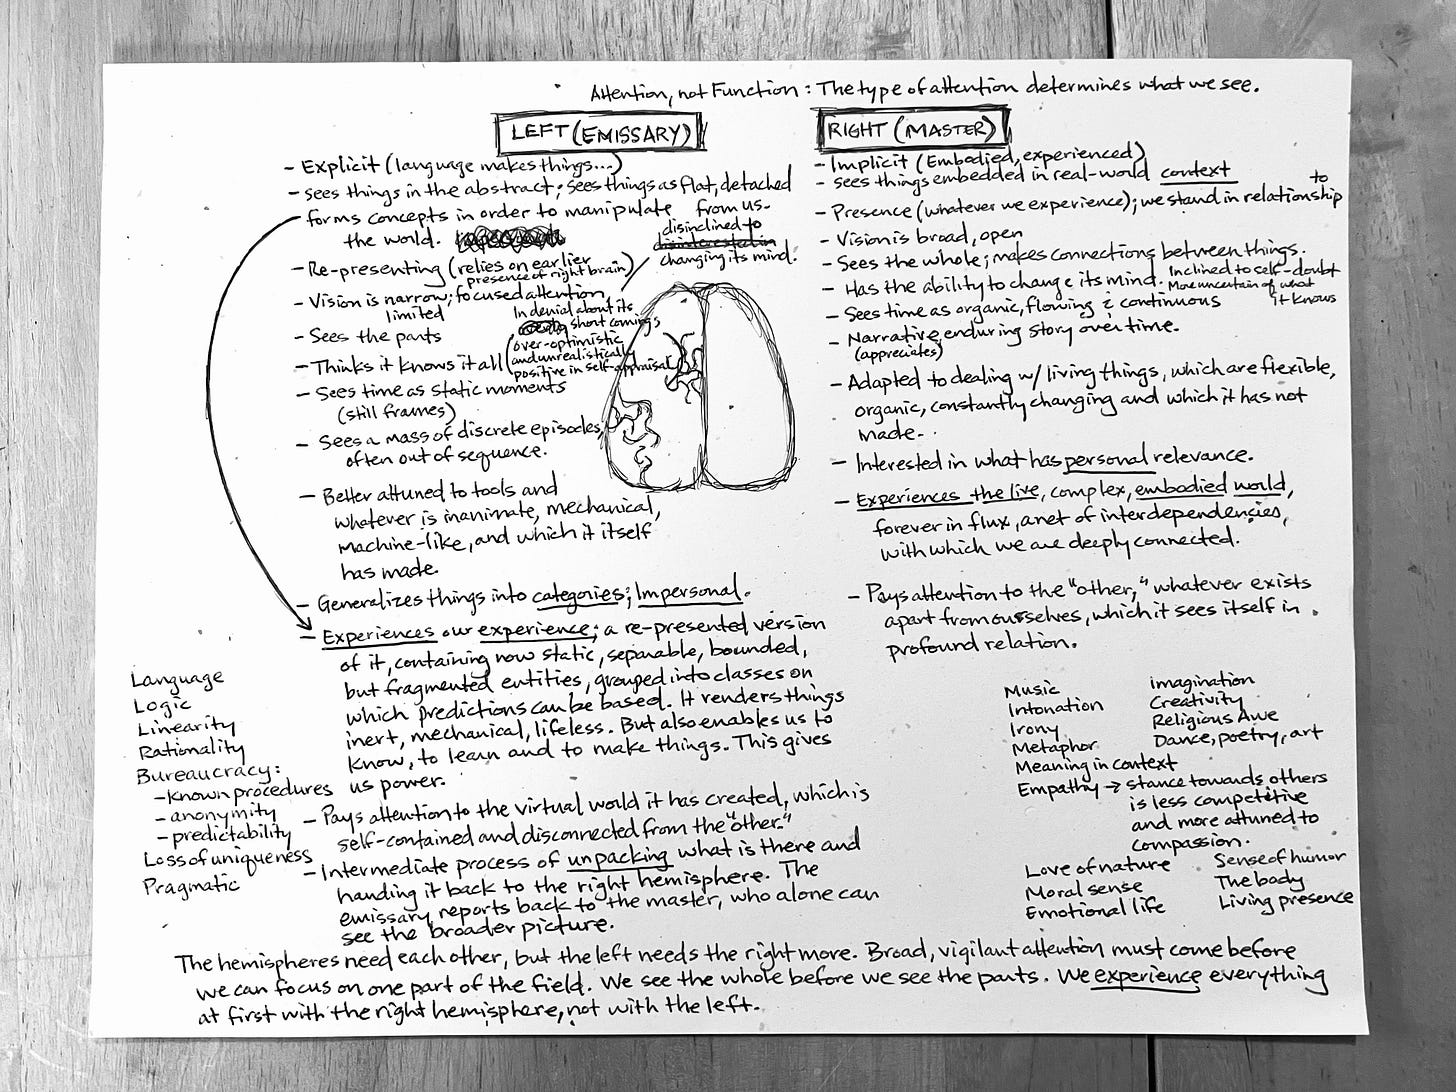 Attention, not Function: The type of attention determines what we see.
LEFT (EMISSARY)
- Explicit (language makes things...)
- sees things in the abstract; sees things as flat, detached
from us.
- forms concepts in order to manipulate
the world.
disinclined to
disinterested in
changing its mind.
- Re-presenting (relies on earlier
presence of right brain)
- Vision is narrow; focused attention
limited
- Sees the parts
- Thinks it knows it all
In denial about its
short comings
over-optimistic
and unrealistically
positive in self-appraisal
- Sees time as static moments
(still frames)
- Sees a mass of discrete episodes,
often out of sequence.
- Better attuned to tools and
whatever is inanimate, mechanical,
machine-like, and which it itself
has made.
- Generalizes things into categories; Impersonal.
- Experiences our experience; a re-presented version
of it, containing now static, separable, bounded,
but fragmented entities, grouped into classes on
which predictions can be based. It renders things
inert, mechanical, lifeless. But also enables us to
know, to learn and to make things. This gives
us power.
- Pays attention to the virtual world it has created, which is
self-contained and disconnected from the "other."
- Intermediate process of unpacking what is there and
handing it back to the right hemisphere. The
emissary reports back to the master, who alone can
see the broader picture.
Language
Logic
Linearity
Rationality
Bureaucracy:
- known procedures
- anonymity
- predictability
Loss of uniqueness
Pragmatic
RIGHT (MASTER)
- Implicit (Embodied, experienced)
- sees things embedded in real-world context
- Presence (whatever we experience); we stand in relationship
to
- Vision is broad, open
- Sees the whole; makes connections between things.
- Has the ability to change its mind.
Inclined to self-doubt
More uncertain of what
it knows
- Sees time as organic, flowing & continuous
- Narrative, enduring story over time.
(appreciates)
- Adapted to dealing w/ living things, which are flexible,
organic, constantly changing and which it has not
made.
- Interested in what has personal relevance.
- Experiences the live, complex, embodied world,
forever in flux, a net of interdependencies,
with which we are deeply connected.
- Pays attention to the "other," whatever exists
apart from ourselves, which it sees itself in
profound relation.
Music
Intonation
Irony
Metaphor
Meaning in context
Empathy → stance towards others
is less competitive
and more attuned to
compassion.
Imagination
Creativity
Religious Awe
Dance, poetry, art
Love of nature
Moral sense
Emotional life
Sense of humor
The body
Living presence
The hemispheres need each other, but the left needs the right more. Broad, vigilant attention must come before
we can focus on one part of the field. We see the whole before we see the parts. We experience everything
at first with the right hemisphere, not with the left.